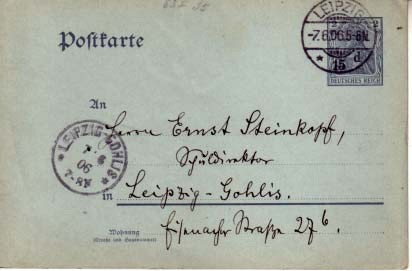 Postkarte
LEIPZIG
2 2
-7.6.06.5-6N.
15 d
DEUTSCHES REICH
An
Herrn Ernst Steinkopf,
Schuldirektor
LEIPZIG-GOHLIS
06
7-8N
in Leipzig-Gohlis.
Wohnung
(Straße und Hausnummer)
Eisenacher Straße 27 b.